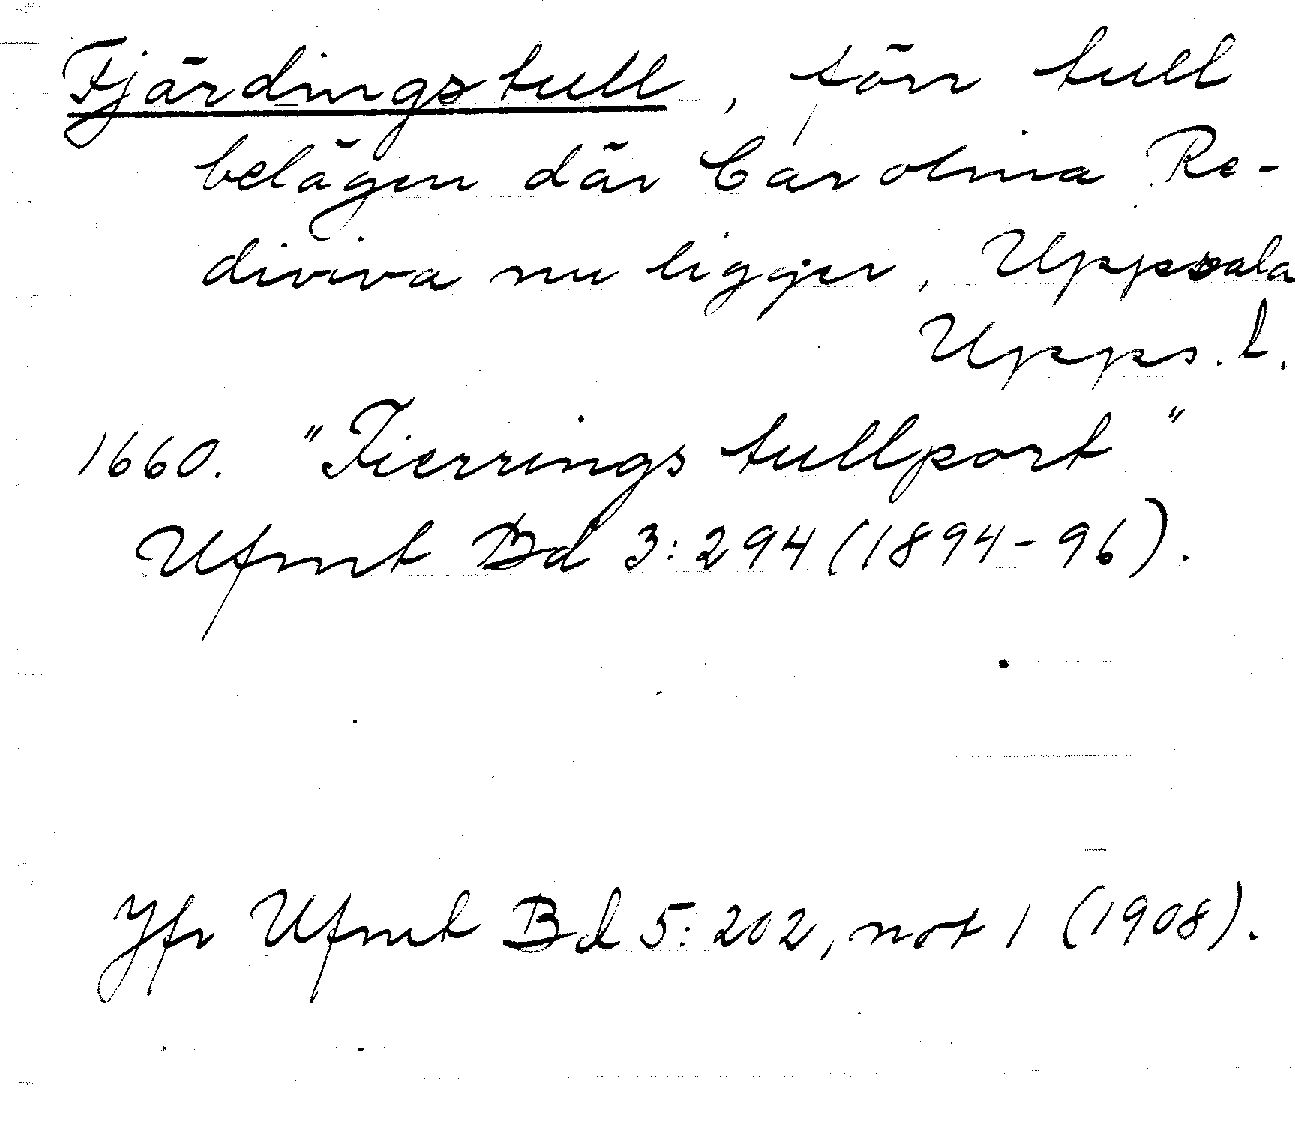 Fjärdingstull, förr tull
belägen där Carolina Re-
diviva nu ligger, Uppsala
Upps. l.
1660. "Fierrings tullport"
Ufmt Bd 3:294 (1894-96).
Jfr Ufmt Bd 5:202, not 1 (1908).